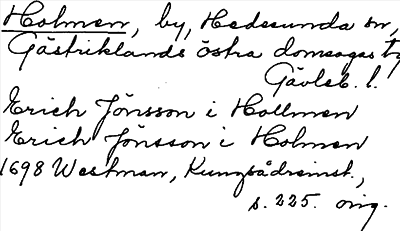 Holmen, by, Hedesunda sn,
Gästriklands östra domsagas tg
Gävleb. l.
Erich Jönsson i Hollmen
Erich Jönsson i Holmen
1698 Westman, Kungsådreinst.,
s. 225. orig.